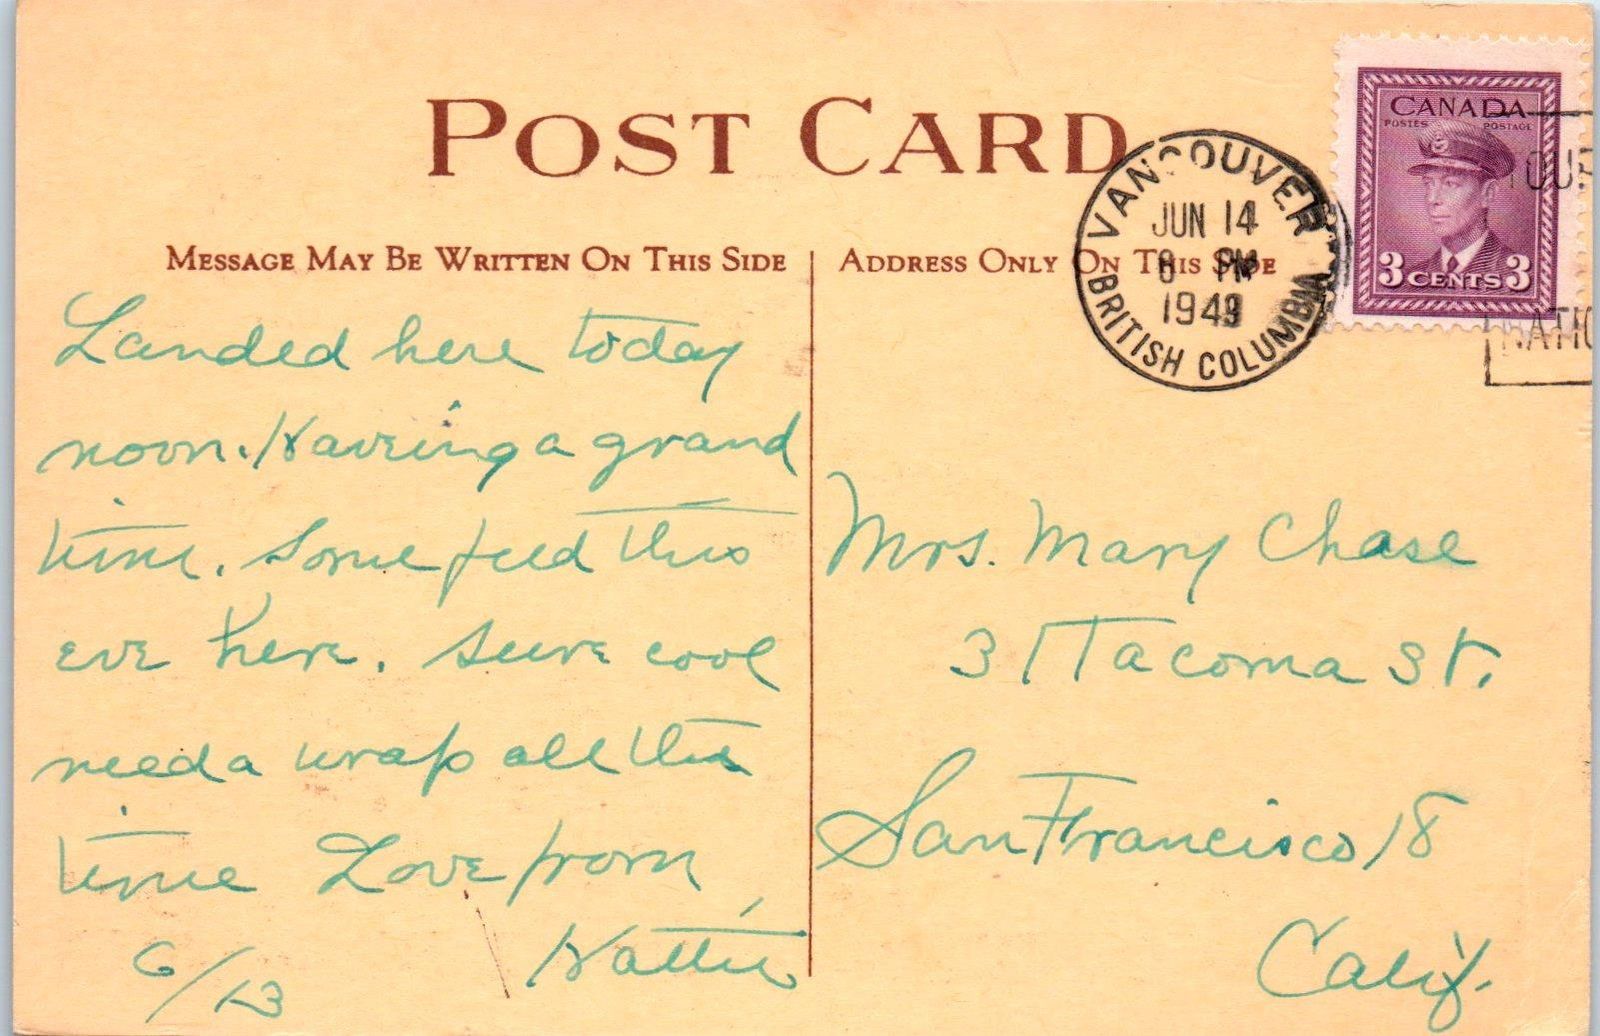 POST CARD
CANADA
POSTES POSTAGE
3 CENTS 3
VANCOUVER
JUN 14
PM
BRITISH COLUMBIA
MESSAGE MAY BE WRITTEN ON THIS SIDE
ADDRESS ONLY ON THIS SIDE
Landed here today
noon. Having a grand
time. Some feed this
eve here. Sure cool
need a wrap all the
time Love from
Hattie
6/13
Mrs. Mary Chase
31 Tacoma St.
San Francisco 18
Calif.